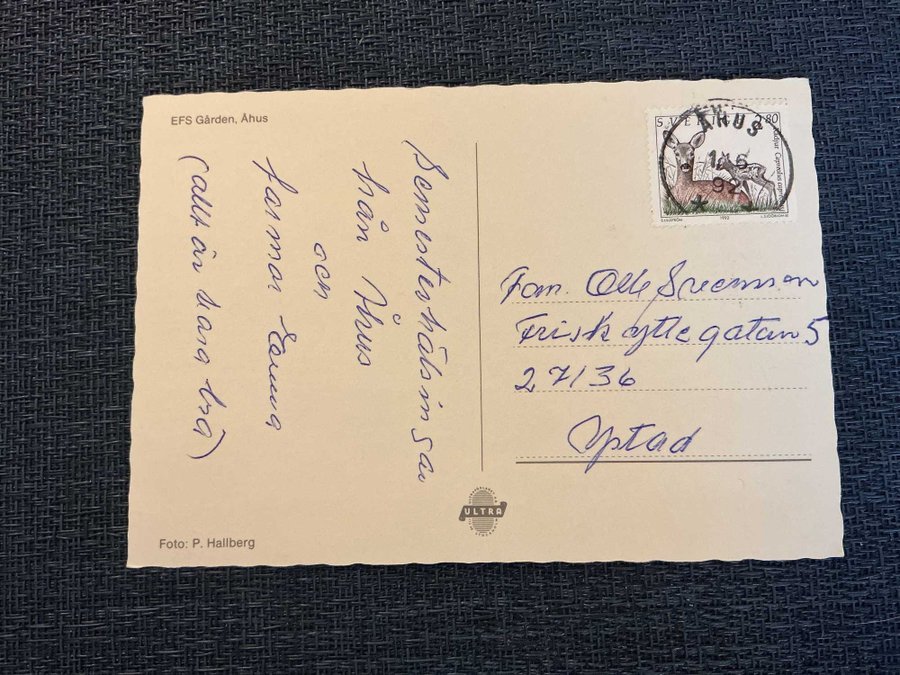 EFS Gården, Åhus
Semesterhälsingar
från Åhus
och
farmor
(allt är bara bra)
SVERIGE 2.80
Rådjur Capreolus capreolus
1992
ÅHUS
92
Fam. Olle Svensson
Friskyttegatan 5
27136
Ystad
ULTRA
Foto: P. Hallberg